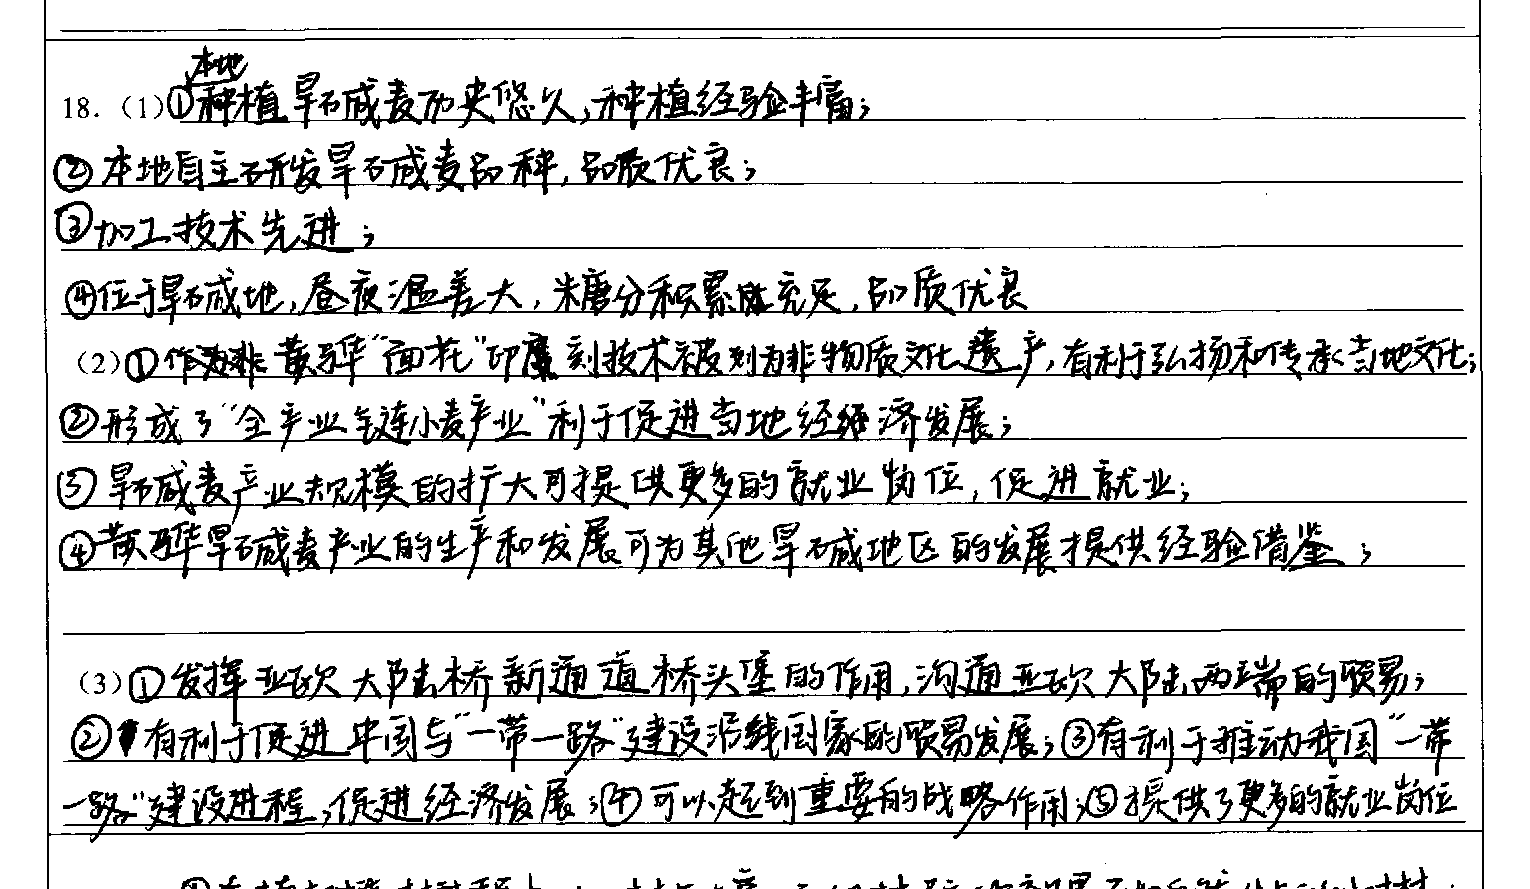 18.（1）①本地种植旱碱麦历史悠久,种植经验丰富;
②本地自主研发旱碱麦品种,品质优良;
③加工技术先进;
④位于旱碱地,昼夜温差大,糖分积累充足,品质优良
（2）①黄骅“面花”印刻技术被列为非物质文化遗产,有利于弘扬和传承当地文化;
②形成了“全产业链小麦产业”利于促进当地经济发展;
③旱碱麦产业规模的扩大可提供更多的就业岗位,促进就业;
④黄骅旱碱麦产业的生产和发展可为其他旱碱地区的发展提供经验借鉴;
（3）①发挥亚欧大陆桥新通道桥头堡的作用,沟通亚欧大陆两端的贸易;
②有利于促进中国与“一带一路”建设沿线国家的贸易发展;③有利于推动我国“一带
一路”建设进程,促进经济发展;④可以起到重要的战略作用;⑤提供了更多的就业岗位